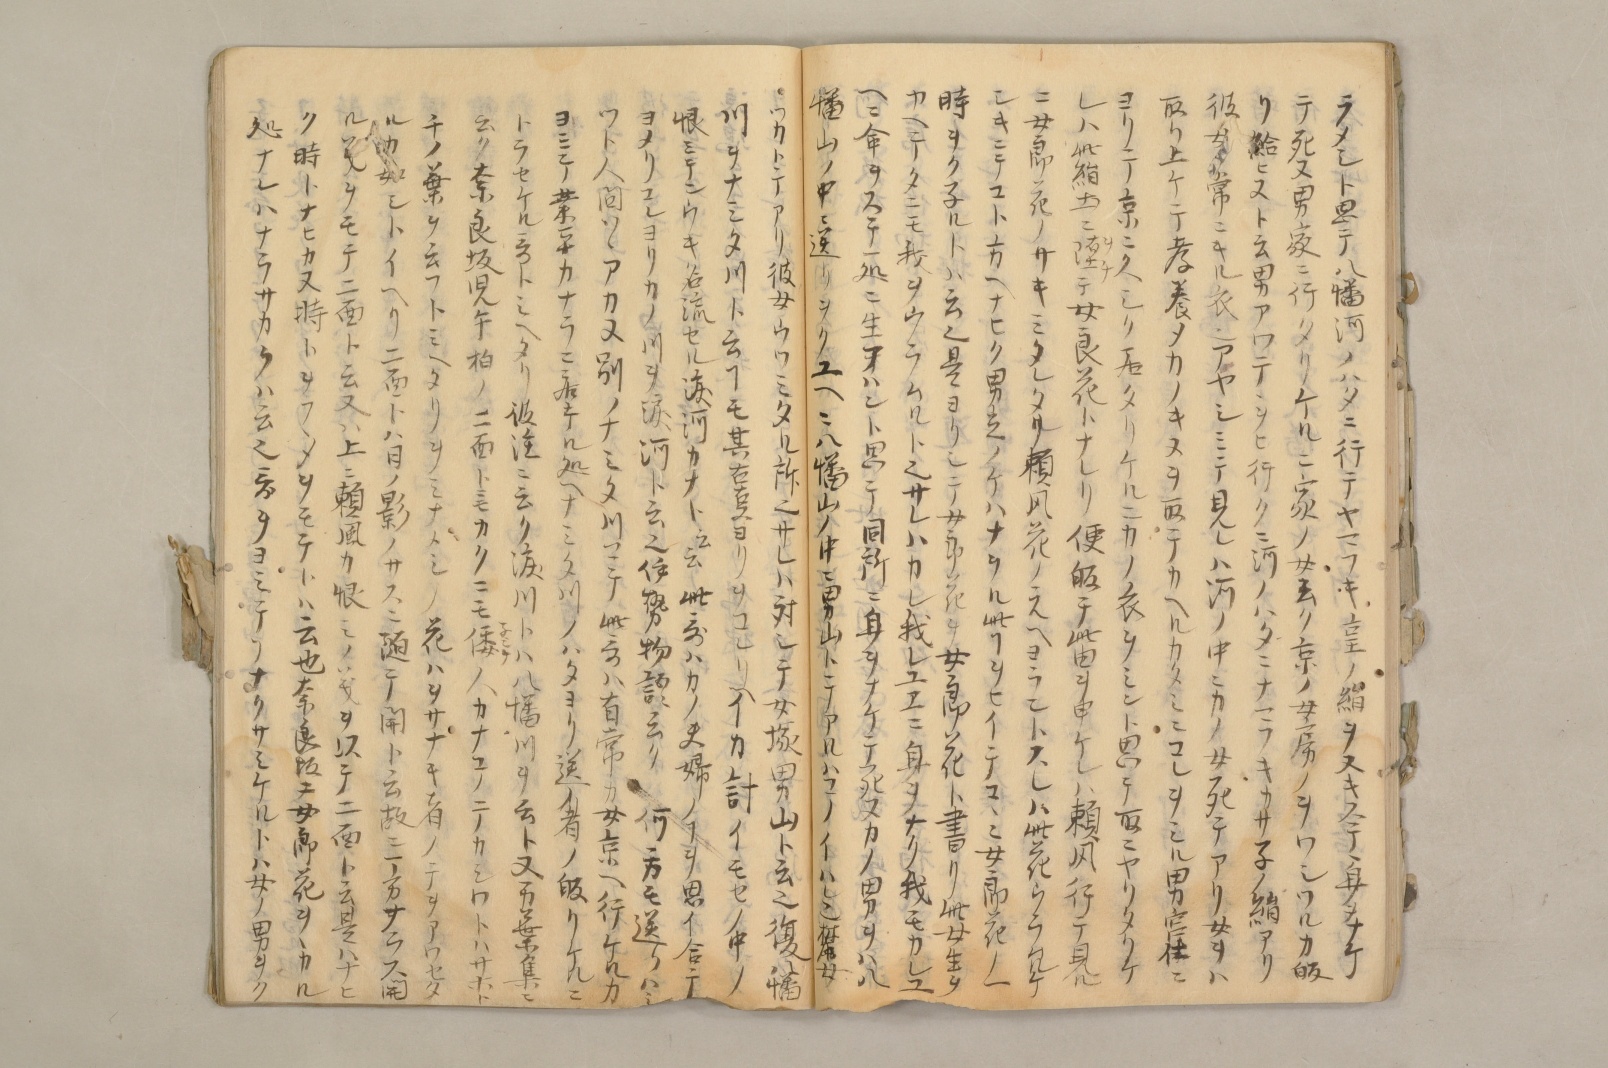 ラメシト思テ八幡河ノハタニ行テヤマフキ重ノ絹ヲヌキステ身ヲナケ
テ死又男家ニ行タリケルニ家ノ女云ク京ノ女房ノヲワシツルカ皈
リ給ヒヌト云男アワテヽヲヒ行クニ河ノハタニヤマフキカサ子ノ絹アリ
彼女カ常ニキル衣アヤシミテ見レハ河ノ中ニカノ女死テアリ女ヲハ
取リ上ケテ孝養メカノキヌヲ取テカヘルカタミニコレヲミル男宮仕ニ
ヨリテ京ニ久シク居タリケルニカノ衣ヲミント思テ取ニヤリタリケ
レハ此絹土ニ墮テ女良花トナレリ便皈テ此由ヲ申ケレハ頼風行テ見
ニ女郎花ノサキミタレタリ頼風花ノ元ヘヨラントスレハ此花ウラミケ
シキニテコト方ヘナヒク男立ノケハナヲル此ヲヒイテココニ女郎花ノ一
時ヲクネルトハ云之是ヨリシテ女郎花ヲ女郎花ト書リ此女生ヲ
カヘテタニモ我ヲウラムルト之サレハカレ我レユエニ身ヲナク我モカレユ
ヘニ命ヲステ一処ニ生アハント思テ同所ニ身ヲナケテ死ヌカノ男ヲハ八
幡山ノ中ニ送リヲクユヘニ八幡山ノ中ニ男山トテアルハコノイハレ之
ツカトテアリ彼女ウツミタル所之サレハ対シテ女塚男山ト云之復八幡
川ヲナミタ川ト云フモ其古ヨリヲコレリ イカ計イモセノ中ノ
恨ミテシウキ名流セル淚河カナト云此哥ハカノ夫婦ノ事ヲ思イ合テ
ヨメリコレヨリカノ川ヲ淚河ト云之伊勢物語ニ云ク 何方モ送リハミ
ツト人間ハヽアカヌ別ノナミタ川マテ此哥ハ有常カ女京ヘ行ケルカ
ヨミテ業平カナラニ居テル処ヘナミタ川ノハタヨリ送者ノ皈リケルニ
トラセケル哥トミヘタリ彼注ニ云ク淚川トハ八幡川ヲ云ト又万葉集ニ
云ク奈良坂児手柏ノ二面トモカクニモ倭人カナコノテカシワトハサホト
チノ葉ヲ云フトミヘタリヲミナメシノ花ハヲサナキ者ノテヲアワセタ
ルカ如シトイヘリ二面トハ日ノ影ノサスニ随テ開ト云故ニ二方サラス開
ル義ヲモテ二面ト云又ハ上ニ頼風カ恨ミノ義ヲ以テ二面ト云是ハナヒ
ク時トナヒカヌ時トヲフクメヲモテトハ云也奈良坂ニ女郎花ヲヽカル
処ナレハナラサカヲハ云之哥ヲヨミテソナクサミケルトハ女ノ男ヲク